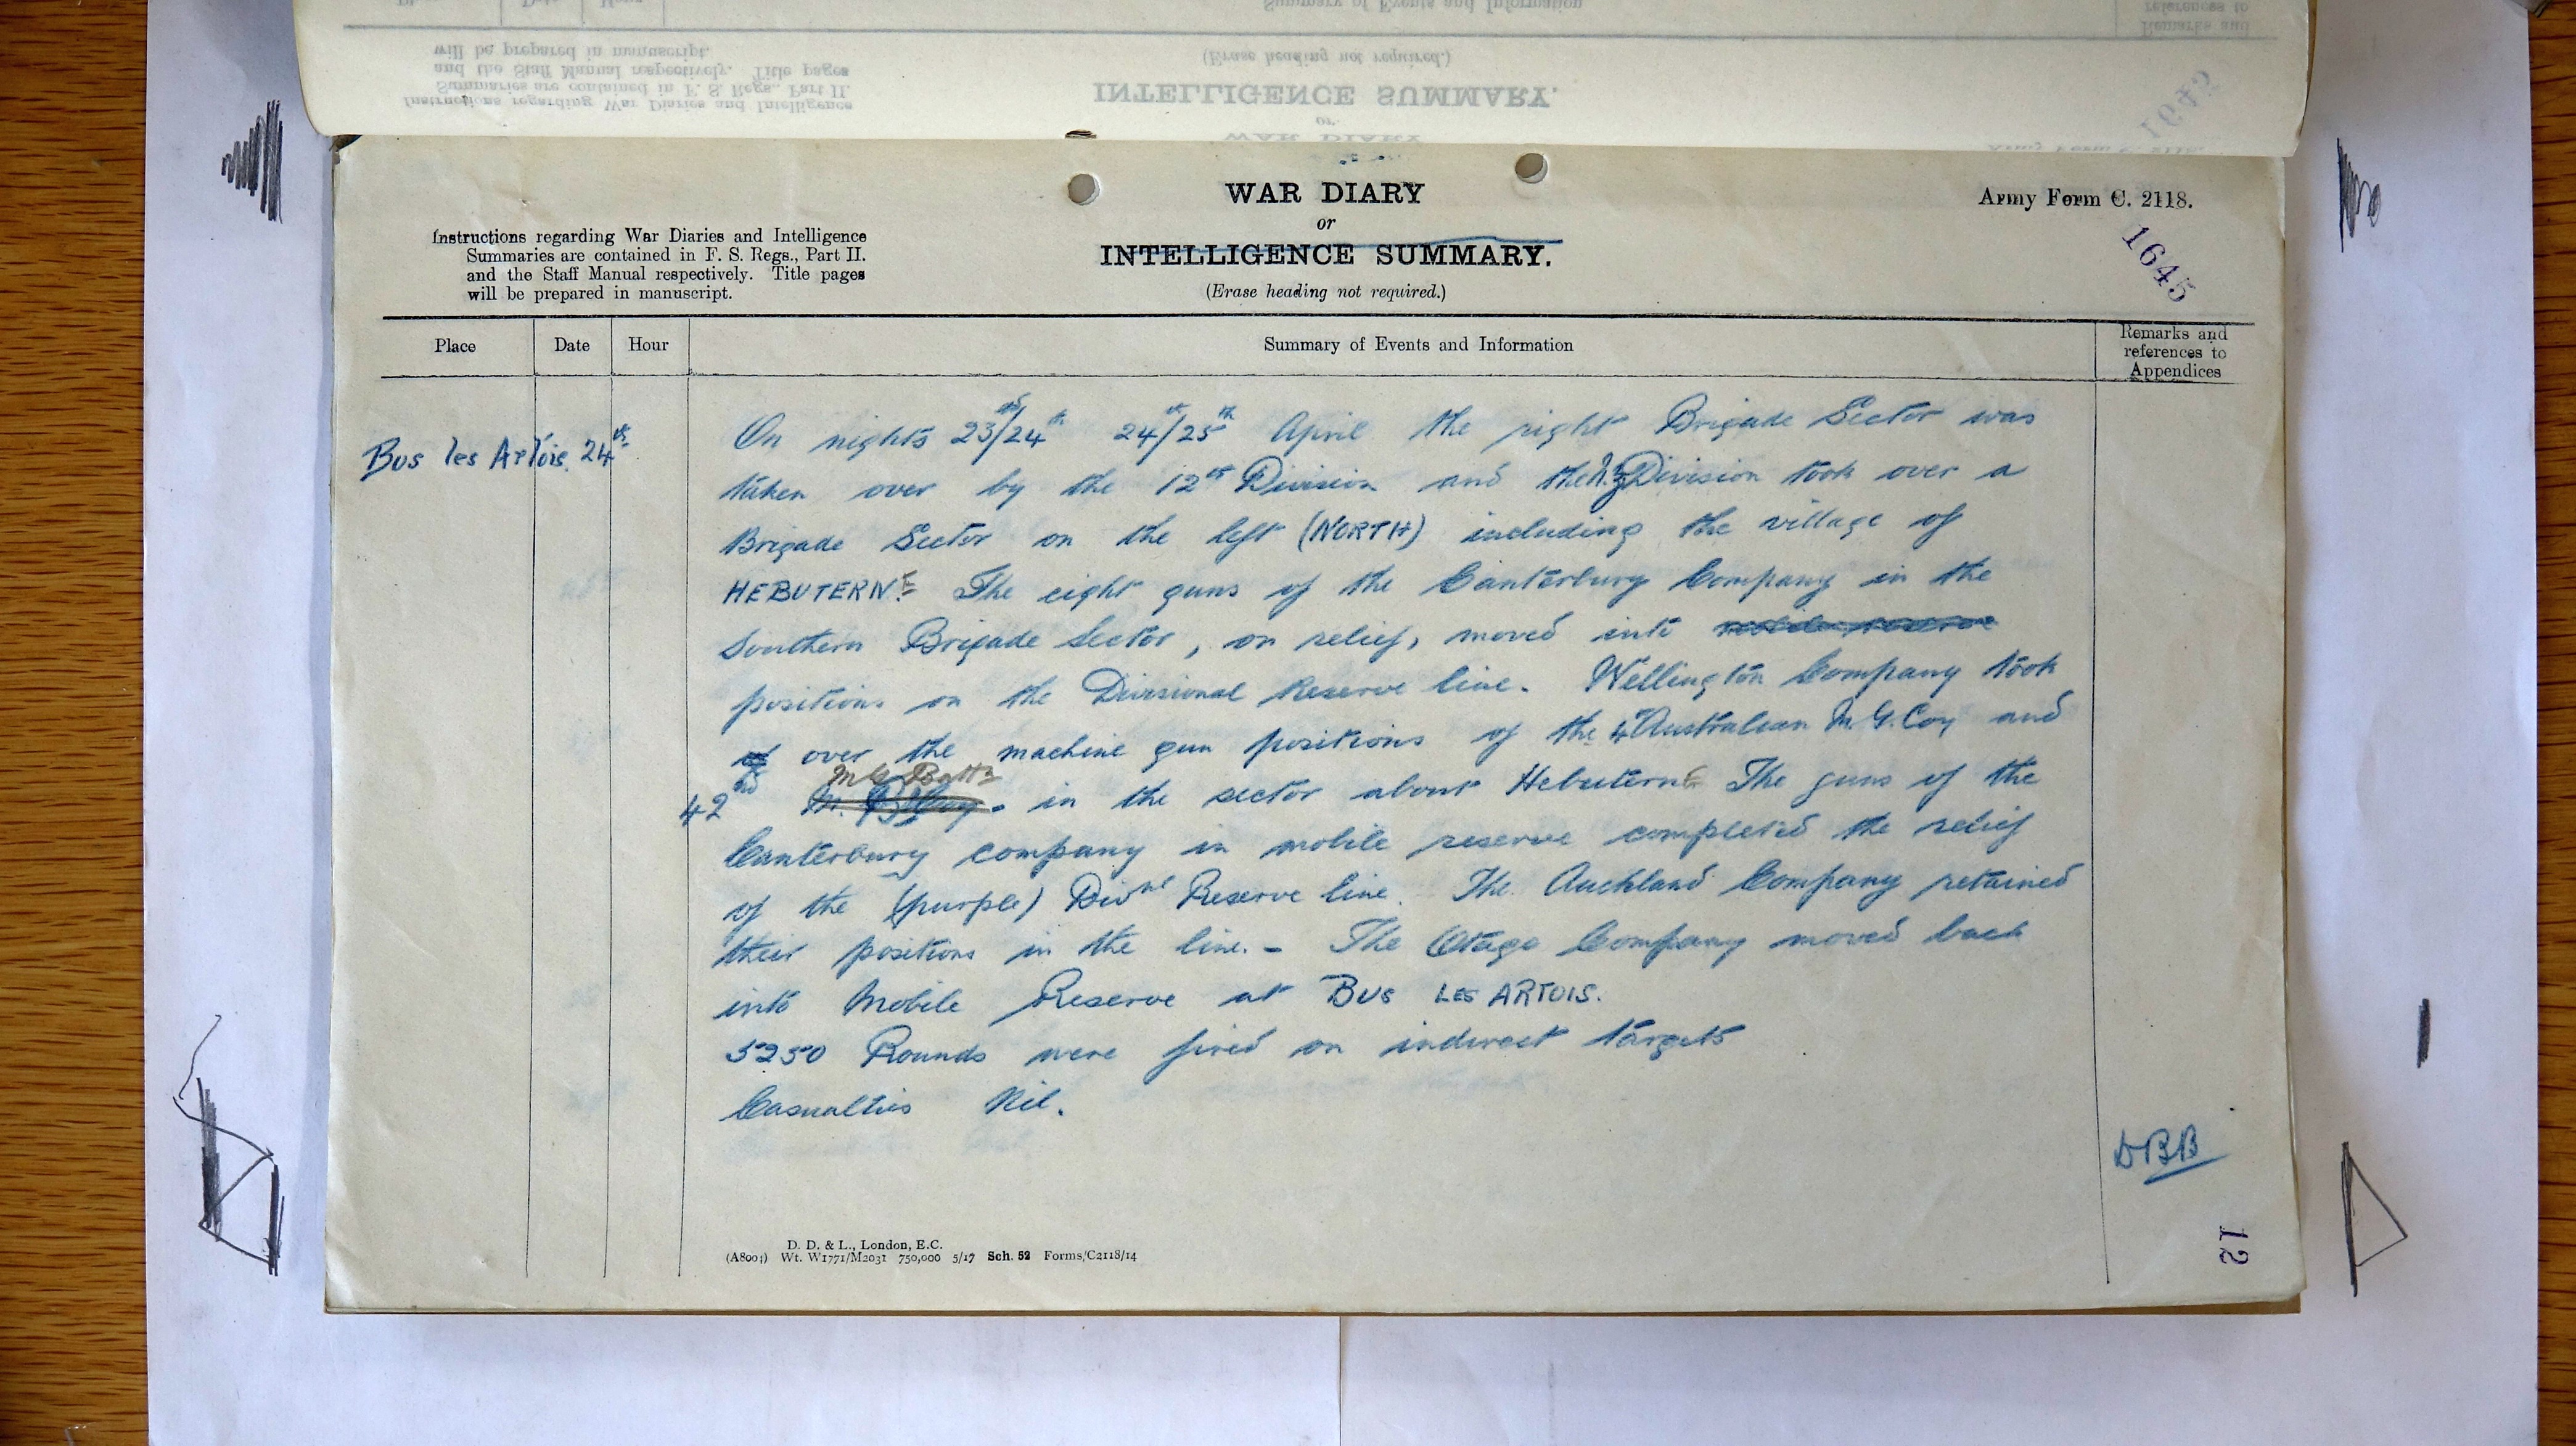 WAR DIARY
or
INTELLIGENCE SUMMARY.
(Erase heading not required.)
Army Form C. 2118.
1645
Instructions regarding War Diaries and Intelligence
Summaries are contained in F. S. Regs., Part II.
and the Staff Manual respectively. Title pages
will be prepared in manuscript.
Place Date Hour Summary of Events and Information Remarks and references to Appendices
Bus les Artois. 24th
On nights 23rd/24th 24th/25th April the right Brigade Sector was
taken over by the 12th Division and the N.Z. Division took over a
Brigade Sector on the left (NORTH) including the village of
HEBUTERNE The eight guns of the Canterbury Company in the
Southern Brigade Sector, on relief, moved into mobile reserve
positions on the Divisional Reserve line. Wellington Company took
over the machine gun positions of the 4th Australian M.G. Coy and
42nd M G Battn in the sector about Hebuterne The guns of the
Canterbury company in mobile reserve completed the relief
of the (purple) Divnl Reserve line. The Auckland Company retained
their positions in the line. - The Otago Company moved back
into Mobile Reserve at BUS LES ARTOIS.
5250 Rounds were fired on indirect targets
Casualties Nil.
DBB
12
D. D. & L., London, E.C.
(A8001) Wt. W1771/M2031 750,000 5/17 Sch. 52 Forms/C2118/14